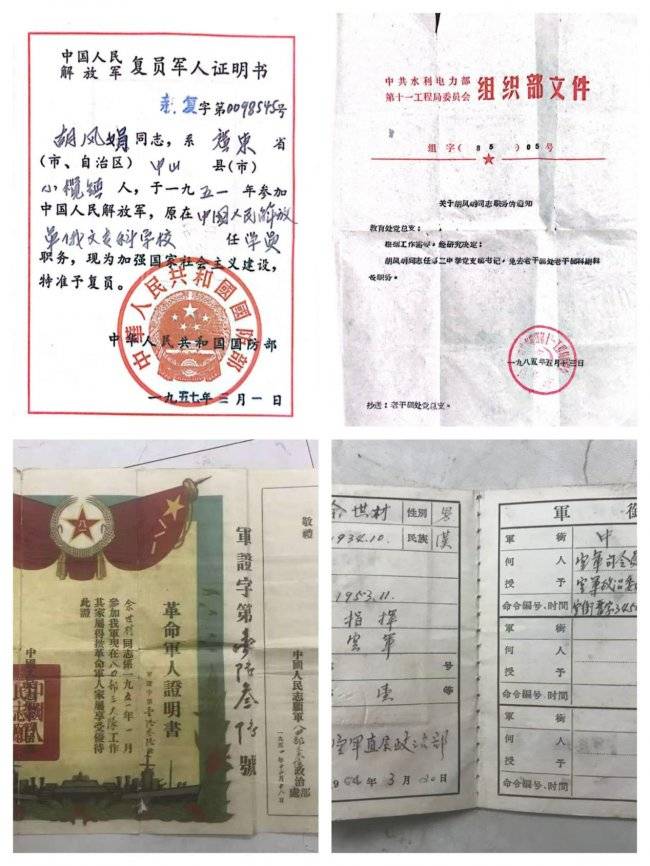 中国人民
解放军 复员军人证明书
复字第0098545号
胡凤娟同志，系 广东 省
(市、自治区) 中山 县(市)
小榄镇 人，于一九五一年参加
中国人民解放军，原在中国人民解放
军俄文专科学校 任学员
职务，现为加强国家社会主义建设，
特准予复员。
中华人民共和国国防部
中華人民共和國國防部
一九五七年三月一日
中共水利电力部
第十一工程局委员会 组织部文件
组字(85)05号
关于胡凤娟同志职务的通知
教育处党总支：
根据工作需要，经研究决定：
胡凤娟同志任第二中学党支部书记，免去老干部处老干部科副科
长职务。
一九八五年五月十三日
抄送：老干部处党总支。
敬禮
軍證字第 號
革命軍人證明書
同志係一九五一年一月
參加我軍現在 工作
其家屬得按革命軍人家屬享受優待
此證
中國人民志願軍 政治部
余世村 性别 男
1934.10. 民族 漢
1953.11.
指揮
空軍
號
等
空軍直屬政治部
1964年3月20日
軍 銜
軍銜 中
何人 空軍司令員
授予 空軍政治委
命令编号、时间
軍銜
何人
授予
命令编号、时间
軍銜
何人
授予
命令编号、时间